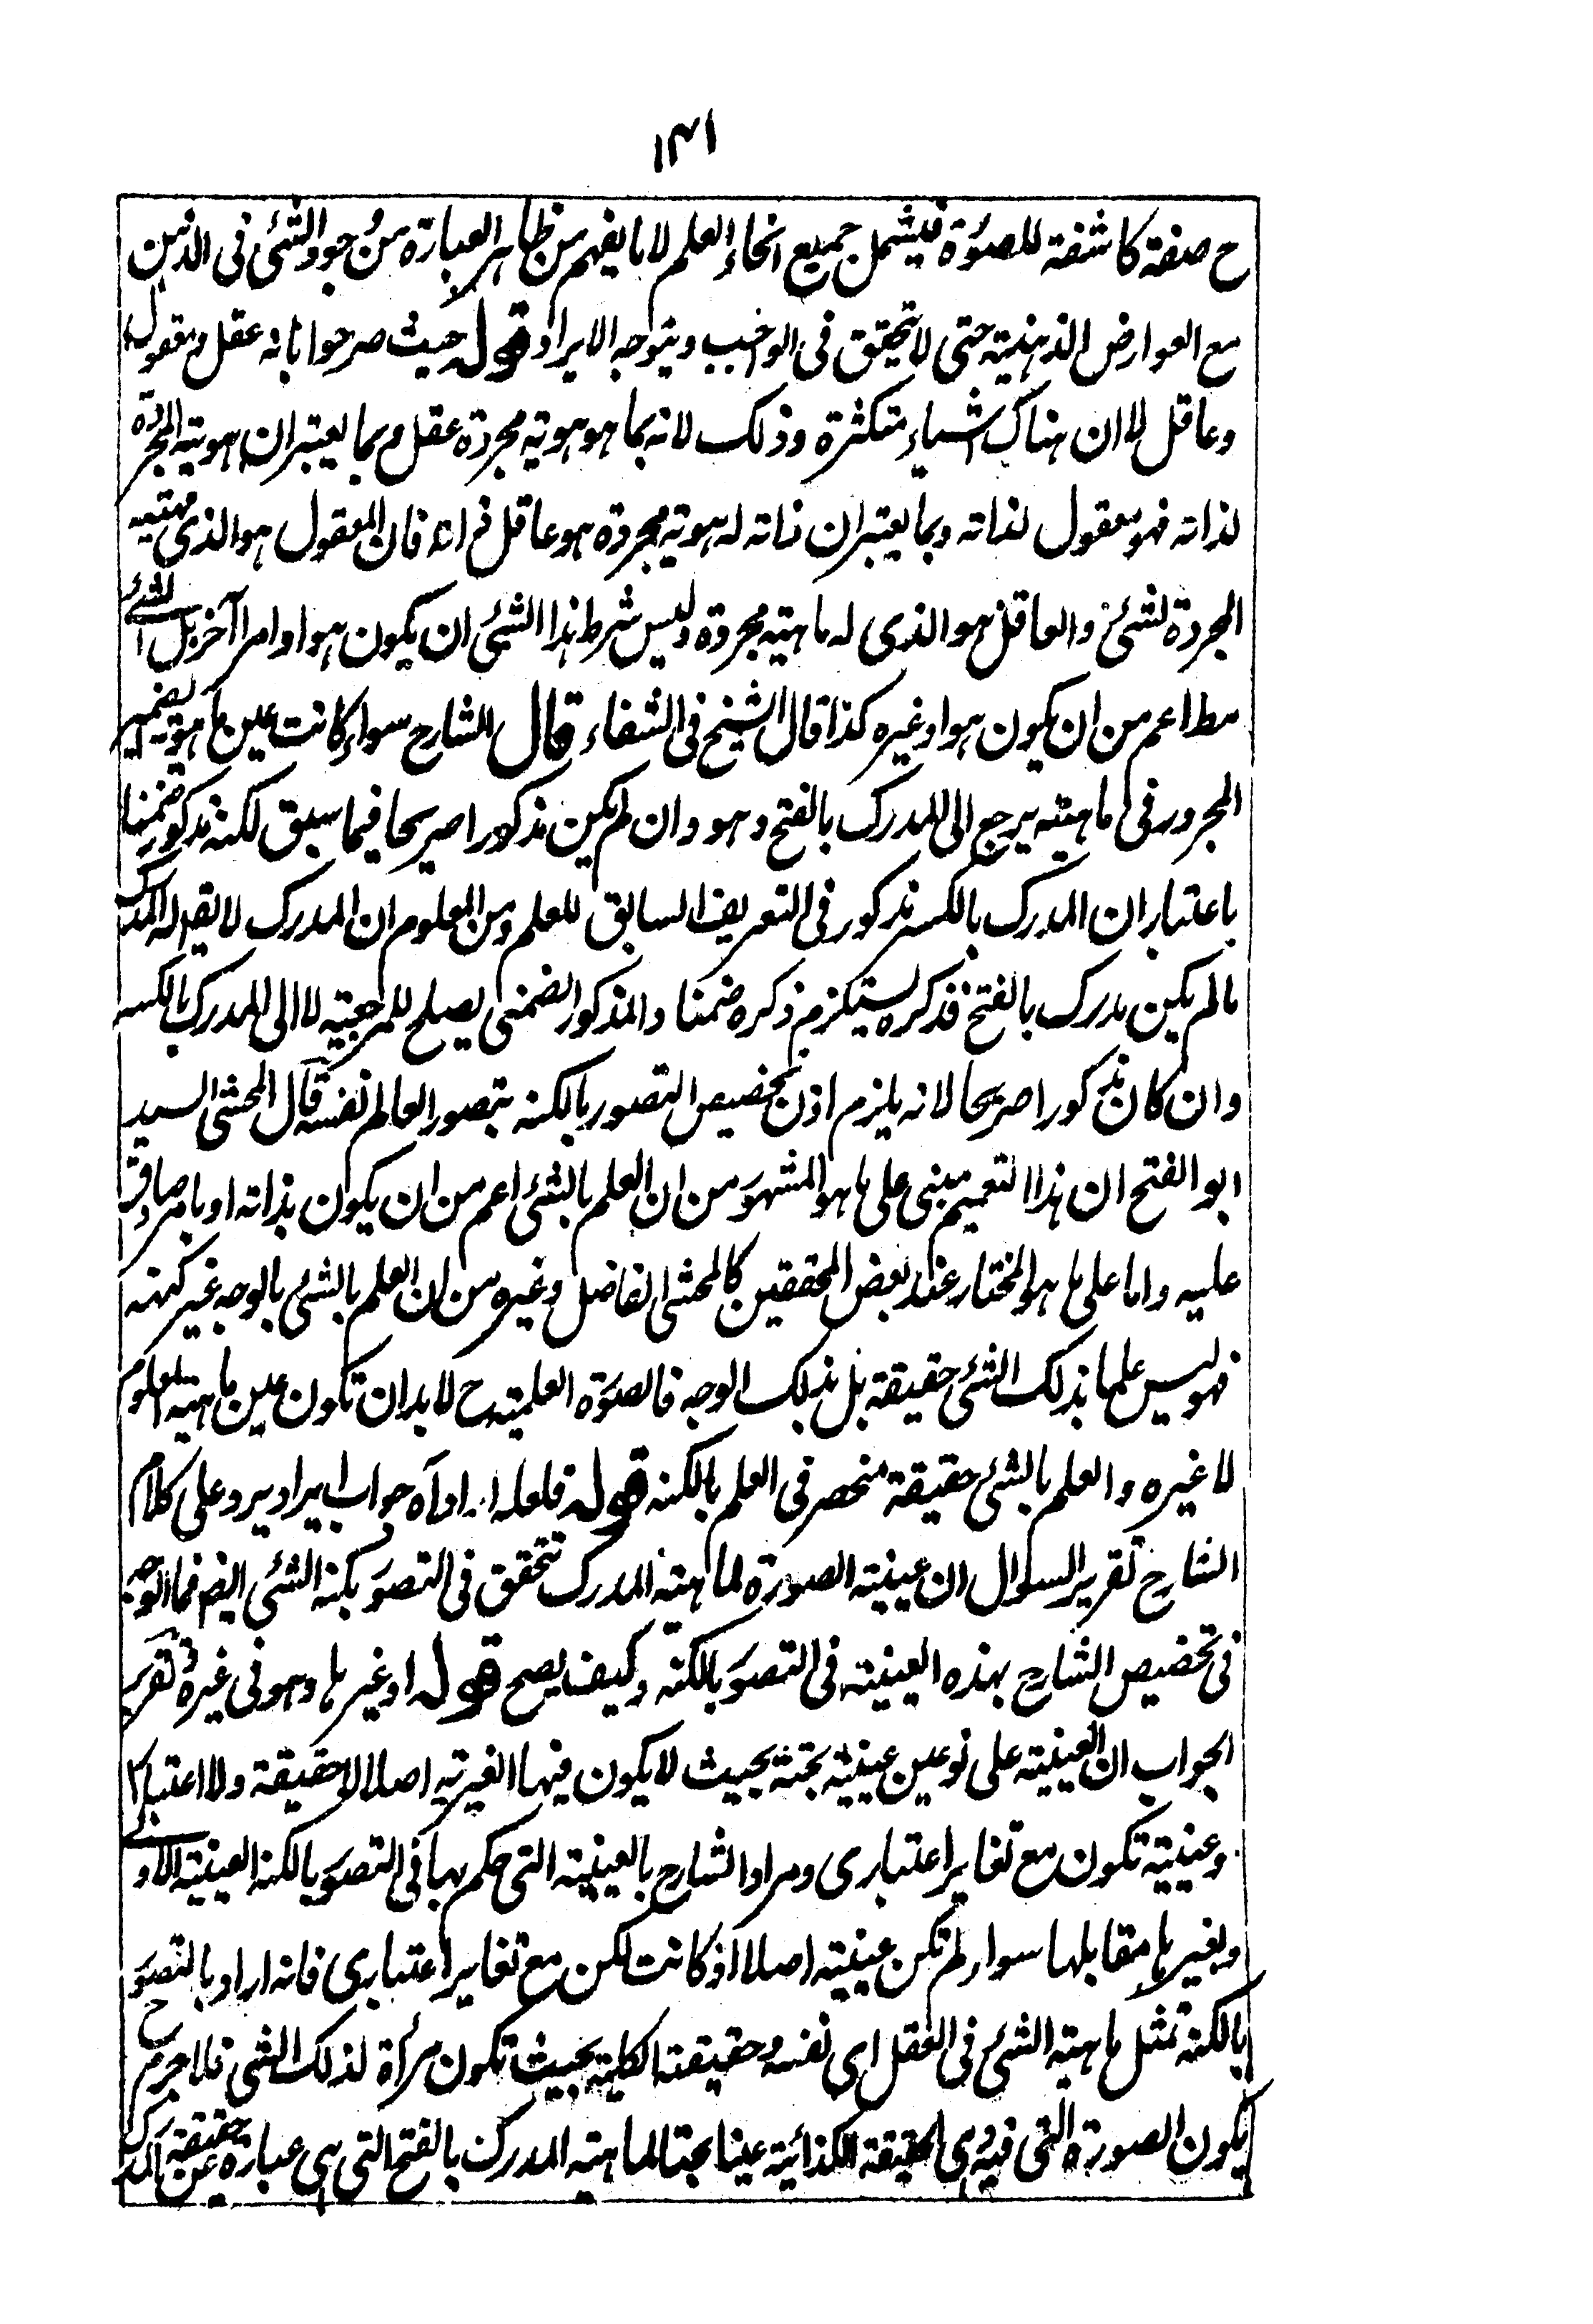 ١٣١
ح صفة كاشفة للصورة فيشمل جميع انحاء العلم لا ما يفهم من ظاهر العبارة من وجود الشئ فى الذهن
مع العوارض الذهنية حتى لا يتحقق فى الواجب ويتوجه الايراد قوله حيث صرحوا بانه عقل ومعقول
وعاقل لا ان هناك اشياء متكثرة وذلك لانه بما هو هوية مجردة عقل وبما يعتبر ان هويته المجردة
لذاته فهو معقول لذاته وبما يعتبر ان ذاته له هوية مجردة هو عاقل ذاته فان المعقول هو الذى مهيته
المجردة لشئ والعاقل هو الذى له ماهية مجردة وليس شرط هذا الشئ ان يكون هو او امرا آخر بل الشئ
مط اعم من ان يكون هو او غيره كذا قال الشيخ فى الشفاء قال الشارح سواء كانت عين ماهيته الضمير
المجرور فى ماهيته يرجع الى المدرك بالفتح وهو وان لم يكن مذكورا صريحا فيما سبق لكنه مذكور ضمنا
باعتبار ان المدرك بالكسر مذكور فى التعريف السابق للعلم ومن المعلوم ان المدرك لا يقم له المدرك
ما لم يكن مدرك بالفتح فذكره يستلزم ذكره ضمنا والمذكور الضمنى يصلح للمرجعية لا الى المدرك بالكسر
وان كان مذكورا صريحا لانه يلزم اذن تخصيص التصور بالكنه بتصور العالم نفسه قال المحشى السيد
ابو الفتح ان هذا التعميم مبنى على ما هو المشهور من ان العلم بالشئ اعم من ان يكون بذاته او بامر صادق
عليه واما على ما هو المختار عند بعض المحققين كالمحشى الفاضل وغيره من ان العلم بالشئ بالوجه غير كنهه
فهو ليس علما بذلك الشئ حقيقة بل بذلك الوجه فالصورة العلمية ح لا بد ان تكون عين ماهية المعلوم
لا غيره والعلم بالشئ حقيقة منحصر فى العلم بالكنه قوله فلعله اراد آه جواب ايراد يرد على كلام
الشارح تقرير السوال ان عينية الصورة لماهية المدرك تتحقق فى التصور بكنه الشئ ايضا فما الوجه
فى تخصيص الشارح بهذه العينية فى التصور بالكنه وكيف يصح قوله او غيرها وهو فى غيره تقرير
الجواب ان العينية على نوعين عينية بحتة بحيث لا يكون فيها الغيرية اصلا لا حقيقة ولا اعتبارا
وعينية تكون مع تغاير اعتبارى ومراد الشارح بالعينية التى حكم بها فى التصور بالكنه العينية الاولى
وبغيرها مقابلها سواء لم تكن عينية اصلا او كانت لكن مع تغاير اعتبارى فانه اراد بالتصور
بالكنه تمثل ماهية الشئ فى العقل اى نفسه وحقيقته الكلية بحيث تكون مرأة لذلك الشئ فلا جرم ح
يكون الصورة التى فيه وهى الحقيقة الكذائية عينا بحتا لماهية المدرك بالفتح التى هى عبارة عن حقيقة المدرك